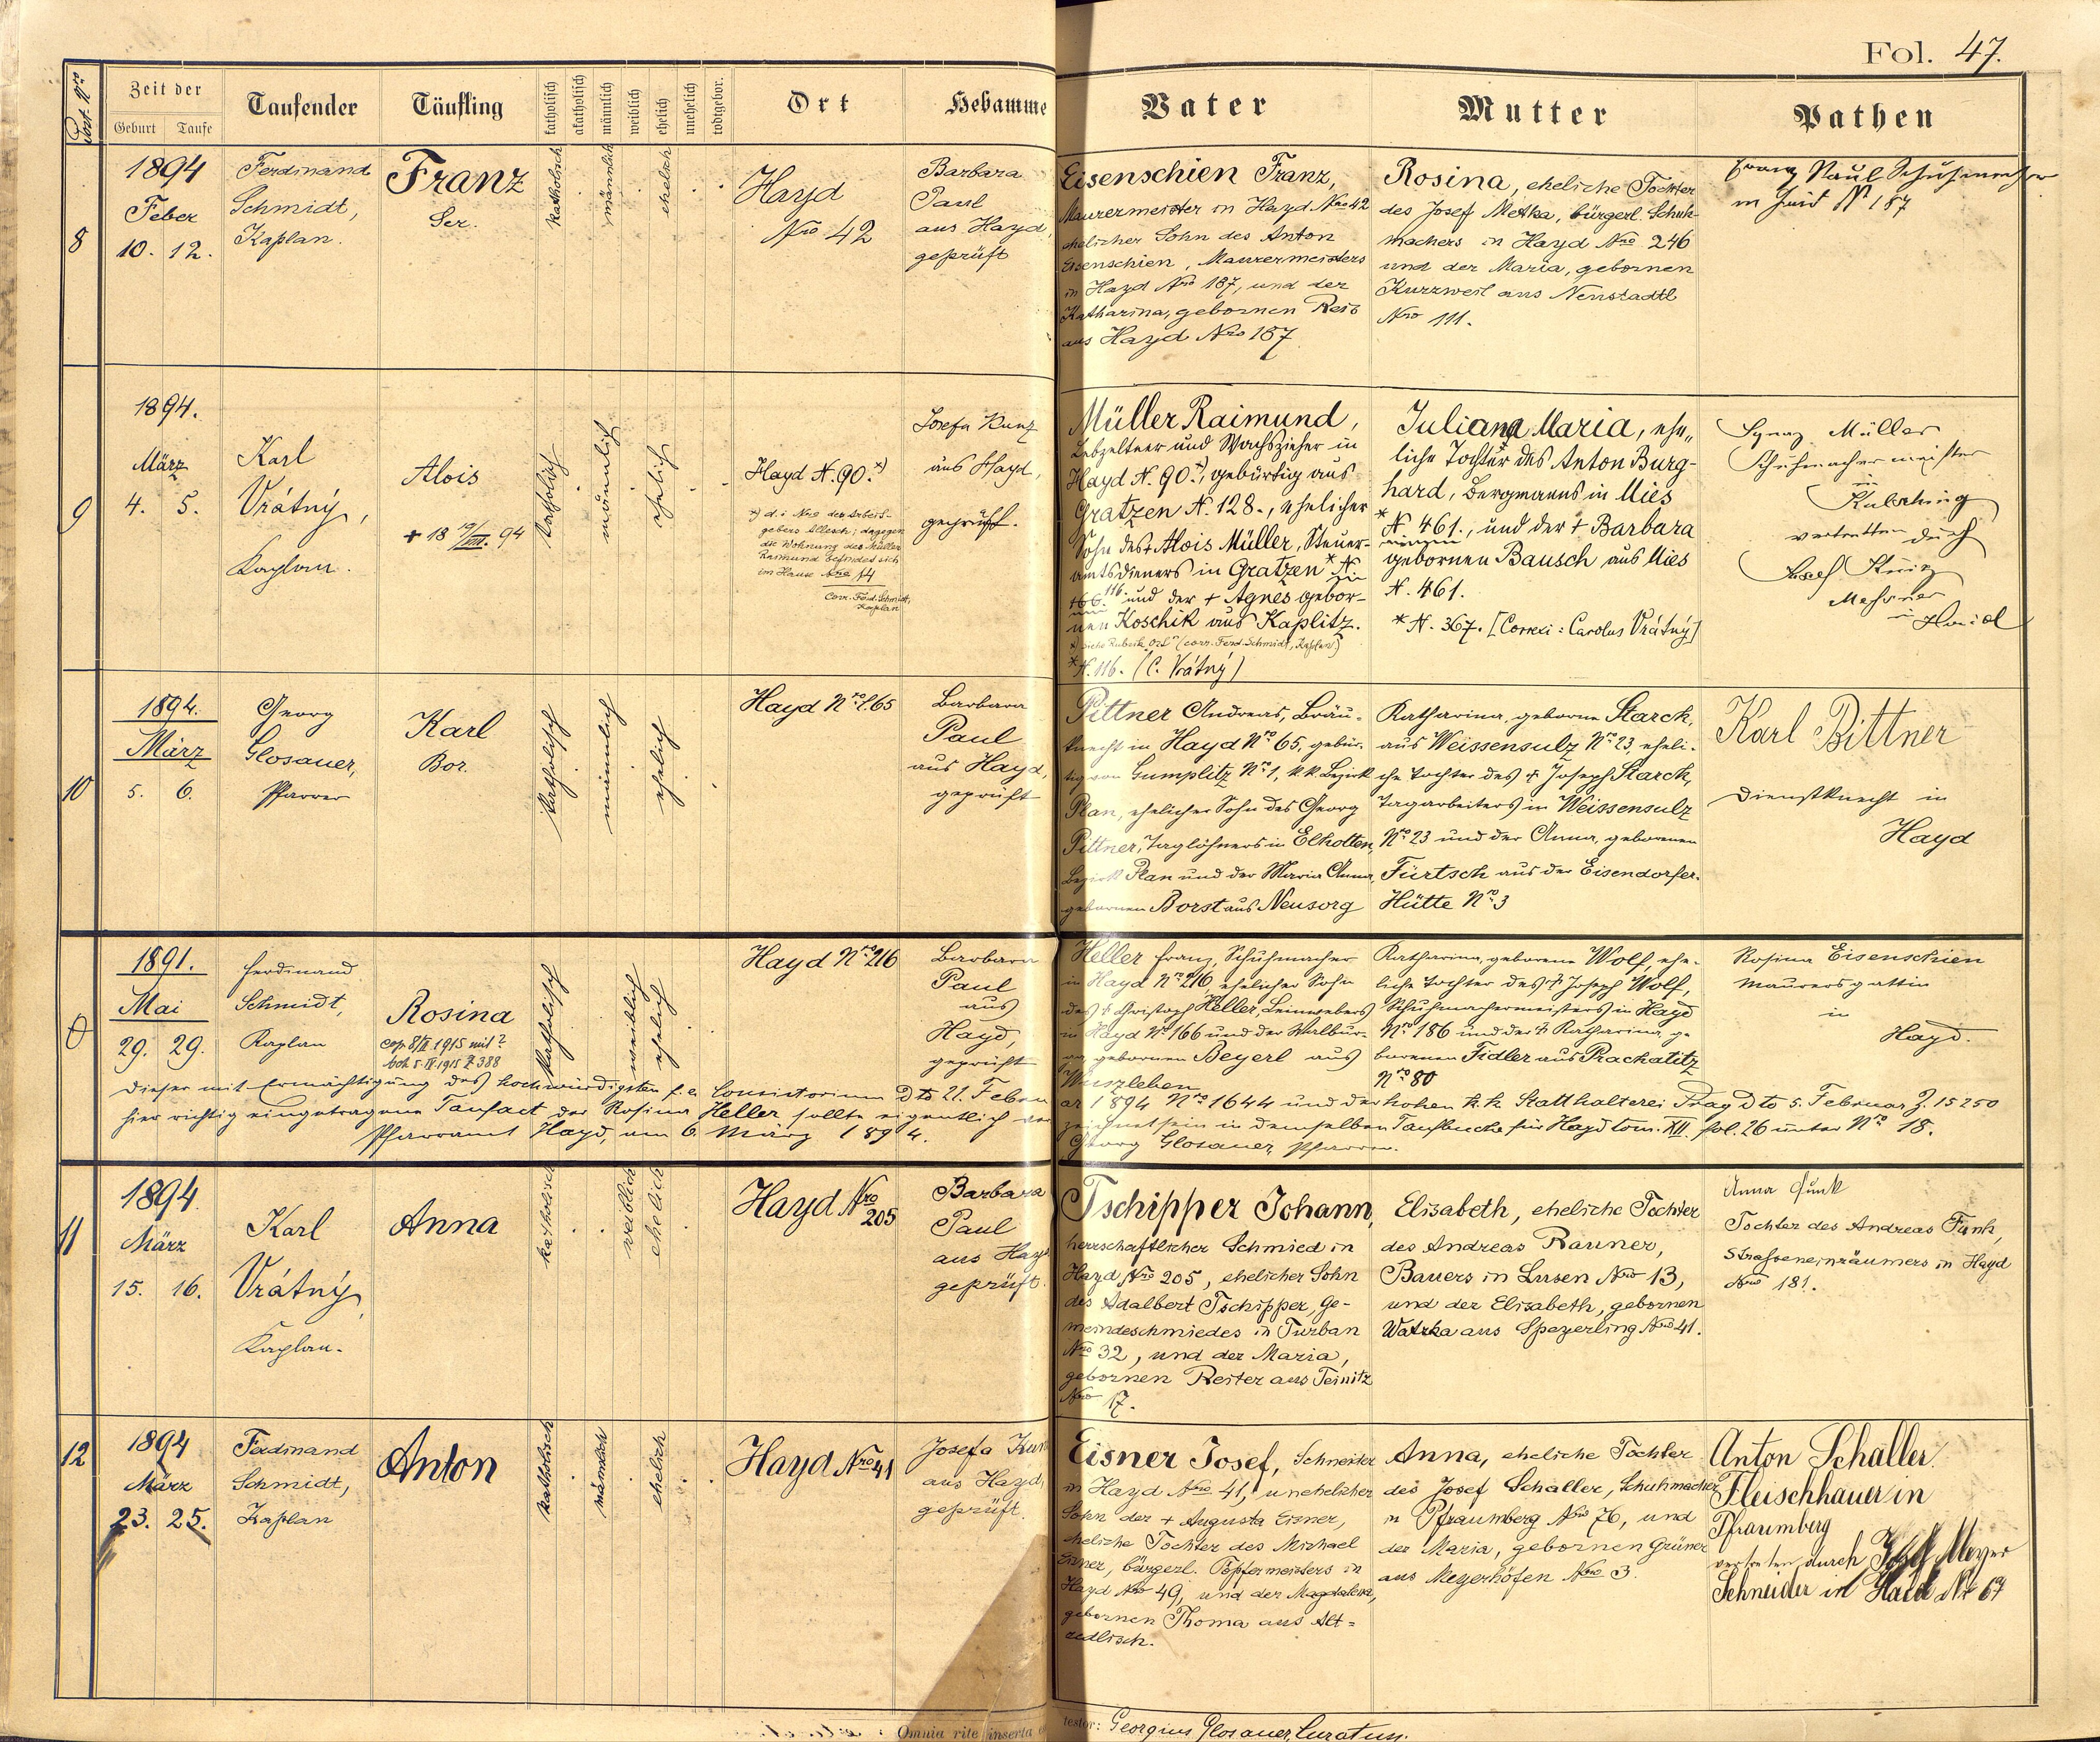 Fol. 47.
Fort. Nro
Zeit der
Geburt Taufe
Taufender
Täufling
katholisch
akatholisch
männlich
weiblich
ehelich
unehelich
todtgebor.
Ort
Hebamme
Vater
Mutter
Pathen
8
1894
Feber
10. 12.
Ferdinand
Schmidt,
Kaplan.
Franz
Ser.
katholisch
männlich
ehelich
Hayd
Nro 42
Barbara
Paul
aus Hayd,
geprüft
Eisenschien Franz,
Maurermeister in Hayd Nro 42
ehelicher Sohn des Anton
Eisenschien, Maurermeisters
in Hayd Nro 187, und der
Katharina, gebornen Reis
aus Hayd Nro 187
Rosina, eheliche Tochter
des Josef Metka, bürgerl. Schuh-
machers in Hayd Nro 246
und der Maria, gebornen
Kurzweil aus Neustadtl
Nro 111.
Franz Paul Schuhmacher
in Haid No 187
9
1894.
März
4. 5.
Karl
Vrátný,
Kaplan.
Alois
+ 18 19/VIII. 94
katholisch
männlich
ehelich
Hayd N. 90. *)
*) d. i. Nro des Arbeit-
gebers Allesch; dagegen
die Wohnung des Müller
Raimund befindet sich
im Hause Nro 14
Corr. Ferd. Schmidt,
Kaplan
Josefa Kunz
aus Hayd,
geprüft.
Müller Raimund,
Lebzelter und Wachszieher in
Hayd N. 90. *), gebürtig aus
Gratzen N. 128., ehelicher
Sohn des + Alois Müller, Steuer-
amtsdieners in Gratzen * N.
116. und der + Agnes gebor-
nen Koschik aus Kaplitz.
*) siehe Rubrik "Ort" (corr. Ferd. Schmidt, Kaplan.)
* N. 116. (C. Vrátný)
Juliana Maria, ehe„
liche Tochter des Anton Burg-
hard, Bergmanns in Mies
* N. 461., und der + Barbara
gebornen Bausch aus Mies
N. 461.
* N. 367. [Correxi: Carolus Vrátný]
Ignaz Müller
Schuhmachermeister
in
vertretten durch
Josef
Messner
in Haid
10
1894.
März
5. 6.
Georg
Glosauer,
Pfarrer
Karl
Bor.
katholisch
männlich
ehelich
Hayd Nro 65
Barbara
Paul
aus Hayd,
geprüft
Pittner Andreas, Bräu-
knecht in Hayd Nro 65, gebür-
tig von Gumplitz Nro 1, k.k. Bezirk
Plan, ehelicher Sohn des Georg
Pittner, Taglöhners in Elhotten,
Bezirk Plan und der Maria Anna,
gebornen Borst aus Neusorg
Katharina, geborne Starck,
aus Weissensulz Nro 23, eheli-
che Tochter des + Joseph Starck,
Tagarbeiters in Weissensulz
Nro 23 und der Anna, geborenen
Fürtsch aus der Eisendorfer-
Hütte Nro 3
Karl Bittner
Dienstknecht in
Hayd
1891.
Mai
29. 29.
Ferdinand
Schmidt,
Kaplan
Rosina
cop. 8/II 1915 mit ?
Z 388
katholisch
weiblich
ehelich
Hayd Nro 216
Barbara
Paul
aus
Hayd,
geprüft
Heller Franz, Schuhmacher
in Hayd Nro 216, ehelicher Sohn
des + Christoph Heller, Leinwebers
in Hayd No 166 und der Walbur-
ga, gebornen Beyerl aus
Wuszleben
Katharina, geborene Wolf, ehe-
liche Tochter des + Joseph Wolf,
Schuhmachermeisters in Hayd
Nro 186 und der + Katharina, ge-
borenen Fidler aus Prachatitz
Nro 80
Rosina Eisenschien
Maurersgattin
in
Hayd.
Dieser mit Ermächtigung des hochwürdigsten f. e. Consistorium dto 21. Febru
ar 1894 Nro 1644 und der hohen k. k. Statthalterei Prag dto 5. Februar Z. 15250
hier richtig eingetragene Taufact der Rosina Heller sollte eigentlich ver
zeichnet sein in demselben Taufbuche für Hayd tom. XII. fol. 26 unter Nro 18.
Pfarramt Hayd, am 6. März 1894.
Georg Glosauer, Pfarrer.
11
1894
März
15. 16.
Karl
Vrátný,
Kaplan.
Anna
katholisch
weiblich
ehelich
Hayd Nro
205
Barbara
Paul
aus Hayd
geprüft.
Tschipper Johann,
herrschaftlicher Schmied in
Hayd Nro 205, ehelicher Sohn
des Adalbert Tschipper, Ge-
meindeschmiedes in Turban
Nro 32, und der Maria,
gebornen Reiter aus Teinitz
Nro 17.
Elisabeth, eheliche Tochter
des Andreas Rauner,
Bauers in Lusen Nro 13,
und der Elisabeth, gebornen
Watzka aus Speyerling Nro 41.
Anna Funk
Tochter des Andreas Funk,
Strasseneinräumers in Hayd
Nro 181.
12
1894
März
23. 25.
Ferdinand
Schmidt,
Kaplan
Anton
katholisch
männlich
ehelich
Hayd Nro 41
Josefa Kun
aus Hayd,
geprüft.
Eisner Josef, Schneider
in Hayd Nro 41, unehelicher
Sohn der + Augusta Eisner,
eheliche Tochter des Michael
Eisner, bürgerl. Töpfermeisters in
Hayd Nro 49, und der Magdalena,
gebornen Thoma aus Alt=
zedlisch.
Anna, eheliche Tochter
des Josef Schaller, Schuhmacher
in Pfraumberg Nro 76, und
der Maria, gebornen Grüner
aus Meyerhöfen Nro 3.
Anton Schaller
Fleischhauer in
Pfraumberg
vertreten durch Josef Meyer
Schneider in Haid Nr 67
Omnia rite inserta e
testor: Georgius Glosauer, Curatus.